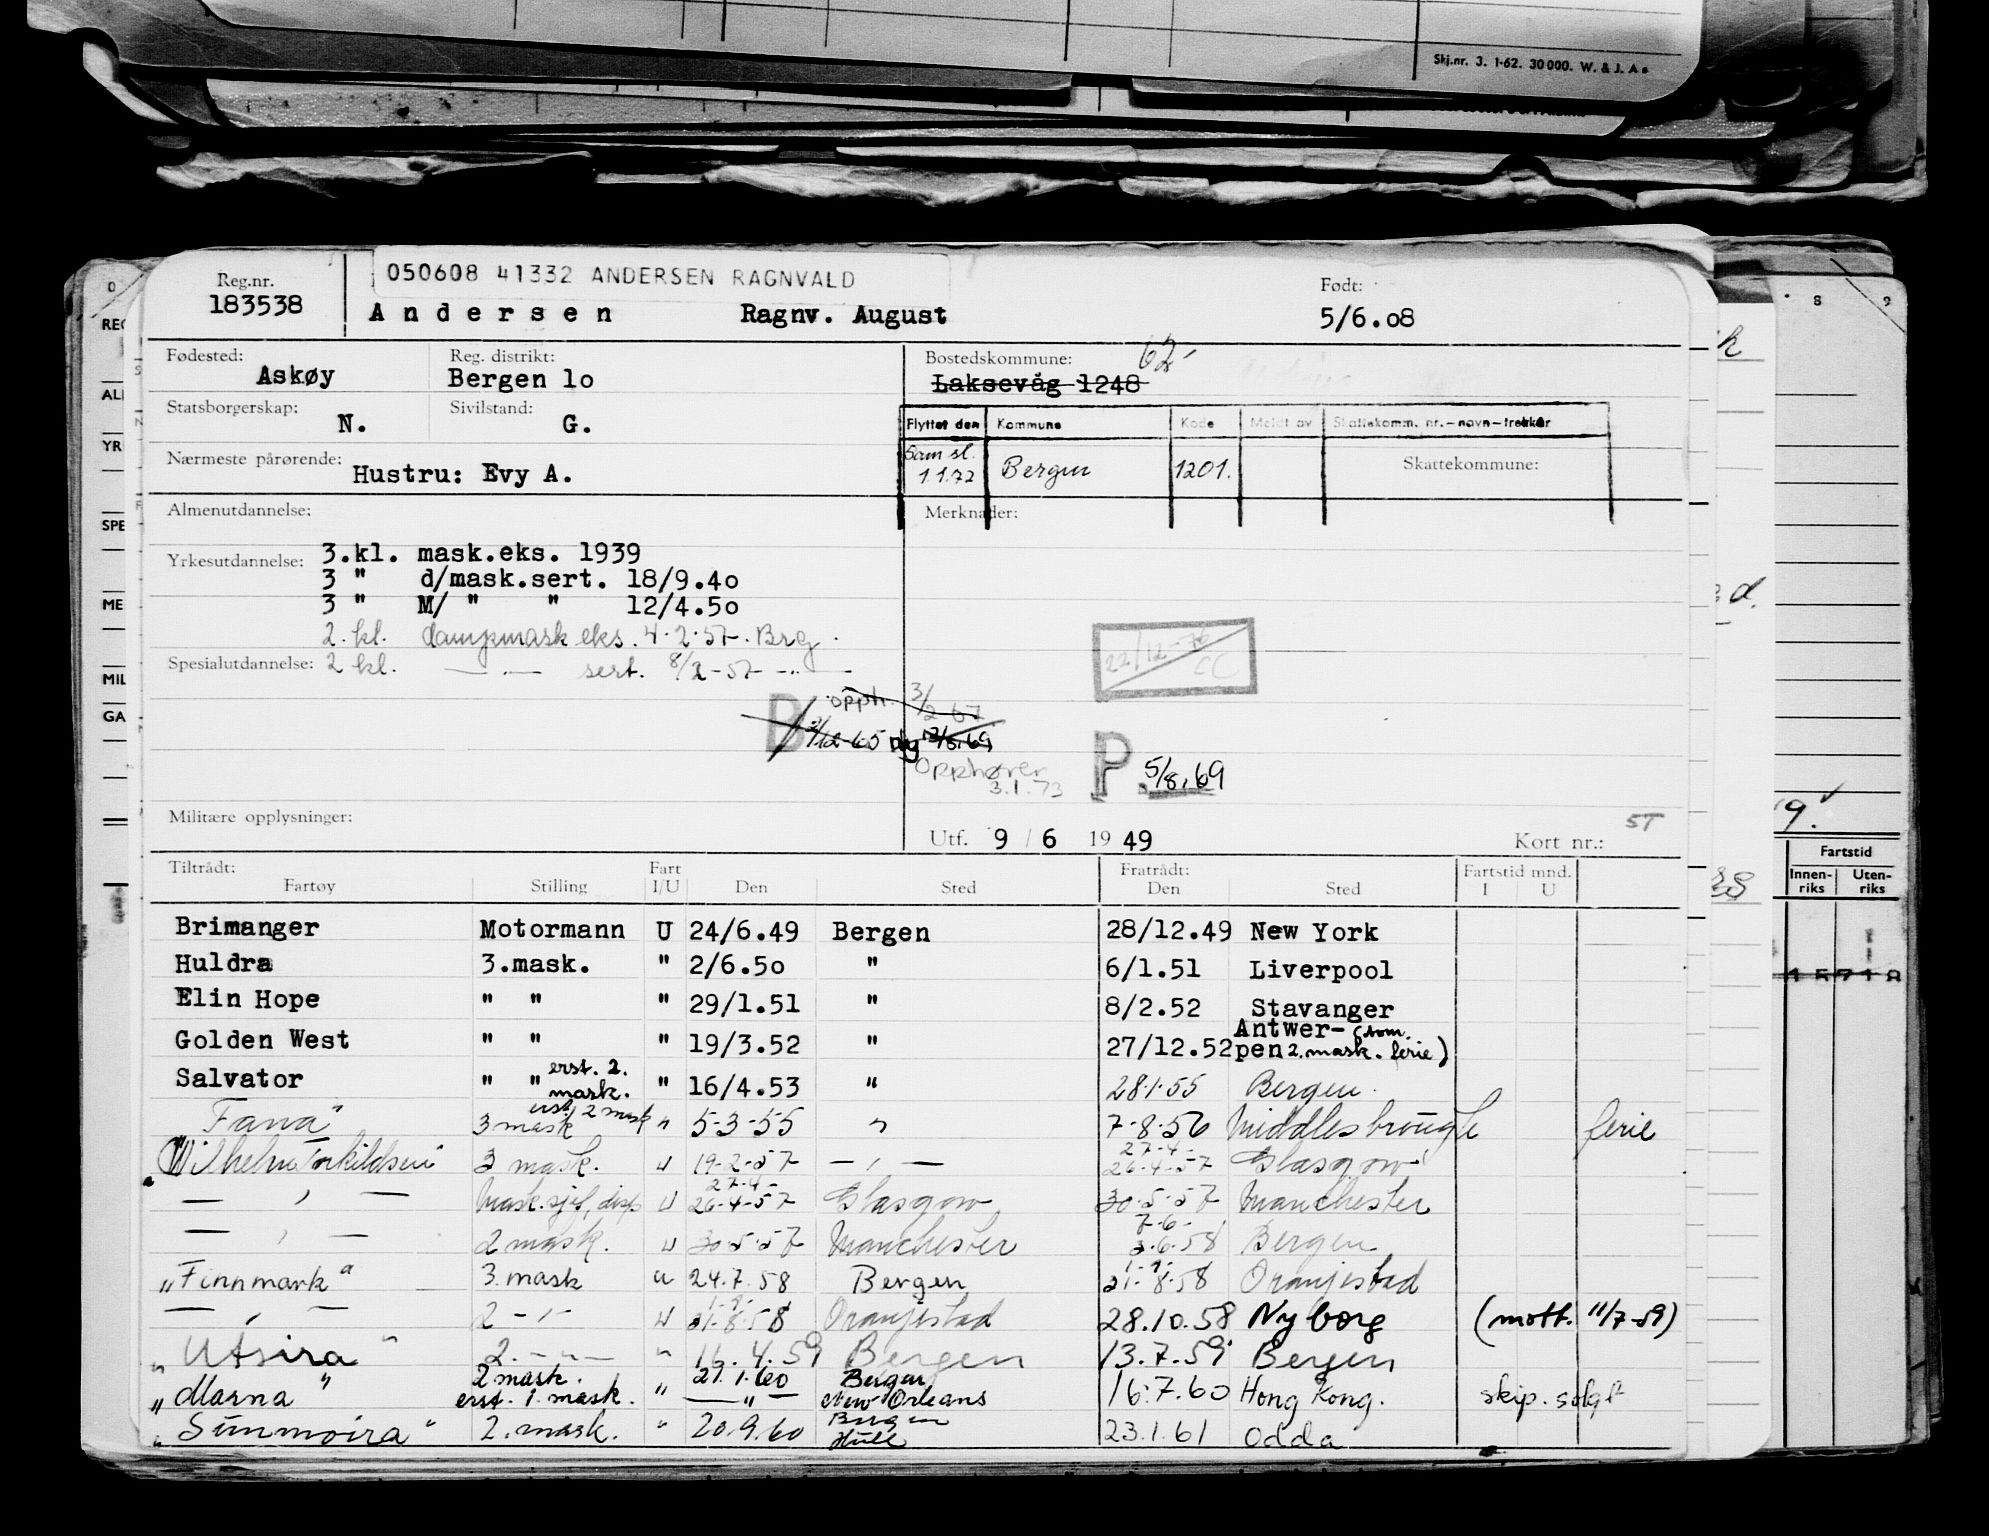 Skj.nr. 3. 1-62. 30000. W. & J. A s
Reg.nr.
183538
050608 41332 ANDERSEN RAGNVALD
Andersen Ragnv. August
Født:
5/6.08
Fødested: Askøy
Reg. distrikt: Bergen 10
Bostedskommune: 62
Laksevåg 1248
Statsborgerskap: N.
Sivilstand: G.
Flyttet den Kommune Kode Meldt av Skattekomm. nr.-navn-trekkår
Sam sl. 1.1.72 Bergen 1201.
Skattekommune:
Nærmeste pårørende: Hustru: Evy A.
Almenutdannelse:
Merknader:
Yrkesutdannelse: 3.kl. mask.eks. 1939
3 " d/mask.sert. 18/9.40
3 " M/ " " 12/4.50
2. kl. dampmask eks. 4.2.57. Brg.
Spesialutdannelse: 2 kl. — " — sert. 8/2-57 - " -
22/12-76 CC
B opph. 3/2 67
3/12-65 ny 12/5.69
Opphører
3.1.73
P 5/8.69
Militære opplysninger:
Utf. 9 / 6 1949
Kort nr.: 5T
Tiltrådt: Fartøy Stilling Fart I/U Den Sted Fratrådt: Den Sted Fartstid mnd. I U
Brimanger Motormann U 24/6.49 Bergen 28/12.49 New York
Huldra 3.mask. " 2/6.50 " 6/1.51 Liverpool
Elin Hope " " " 29/1.51 " 8/2.52 Stavanger
Golden West " " " 19/3.52 " 27/12.52 Antwerpen (som 2. mask. ferie)
Salvator " " erst. 2. mask. " 16/4.53 " 28.1.55 Bergen.
Fana" 3 mask erst 2 mask " 5-3-55 " 7-8-56 Middlesbrough ferie
"Wilhelm Torkildsen 3 mask. U 19-2-57 — " — 27-4- 26-4-57 Glasgow
— " — mask.sjef, disp U 27-4- 26-4-57 Glasgow 30.5.57 Manchester
— " — 2 mask. U 30.5.57 Manchester 7-6- 3.6.58 Bergen
"Finnmark" 3. mask U 24.7.58 Bergen 1-9- 31-8-58 Oranjestad
— " — 2 - " - U 1-9- 31-8-58 Oranjestad 28.10.58 Nyborg (mott. 11/7-59)
"Utsira" 2. — " — " 16.4.59 Bergen 13.7.59 Bergen
"Marna" 2 mask. 27.1.60 Bergen
erst. 1. mask. " — " — New Orleans 16.7.60 Hong Kong. skip. solgt
"Sunmøira" 2. mask. " 20.9.60 Bergen Hull 23.1.61 Odda
Fartstid
Innenriks Utenriks